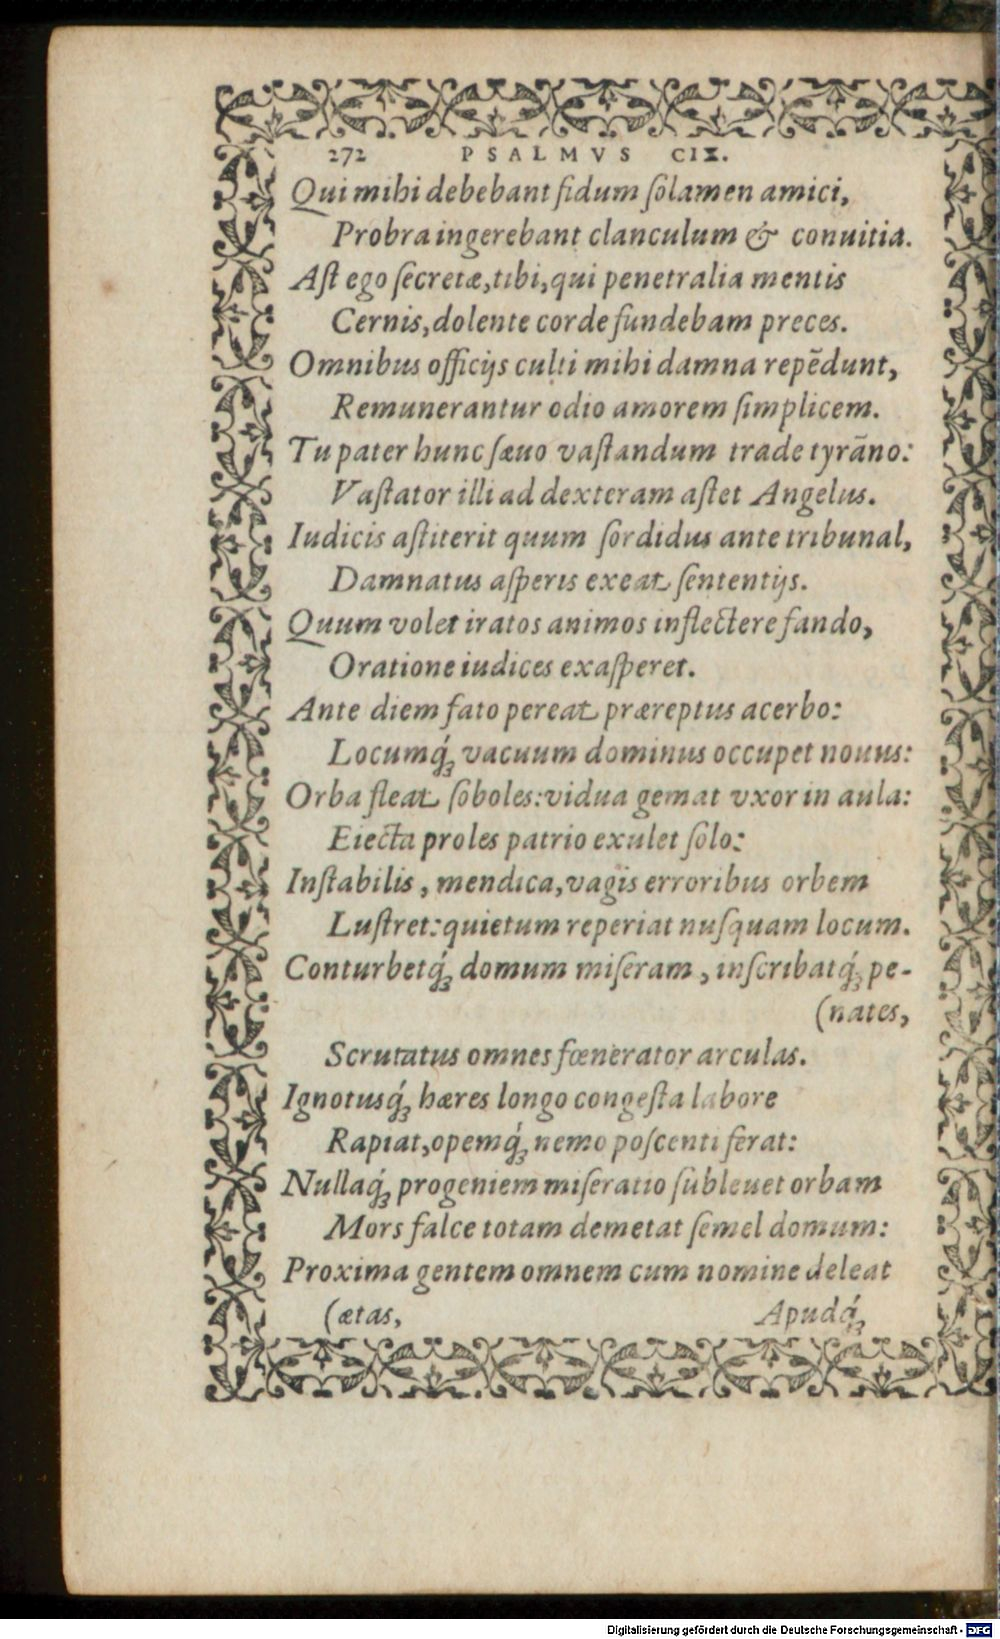 272 PSALMVS CIX.
Qui mihi debebant fidum ſolamen amici,
Probra ingerebant clanculum & conuitia.
Aſt ego ſecretæ, tibi, qui penetralia mentis
Cernis, dolente corde fundebam preces.
Omnibus officijs culti mihi damna repẽdunt,
Remunerantur odio amorem ſimplicem.
Tu pater hunc ſæuo vaſtandum trade tyrãno:
Vaſtator illi ad dexteram aſtet Angelus.
Iudicis aſtiterit quum ſordidus ante tribunal,
Damnatus aſperis exeat ſententijs.
Quum volet iratos animos inflectere fando,
Oratione iudices exaſperet.
Ante diem fato pereat præreptus acerbo:
Locumq́ꝫ vacuum dominus occupet nouus:
Orba fleat ſoboles: vidua gemat vxor in aula:
Eiecta proles patrio exulet ſolo:
Inſtabilis, mendica, vagis erroribus orbem
Luſtret: quietum reperiat nuſquam locum.
Conturbetq́ꝫ domum miſeram, inſcribatq́ꝫ pe-
(nates,
Scrutatus omnes fœnerator arculas.
Ignotusq́ꝫ hæres longo congeſta labore
Rapiat, opemq́ꝫ nemo poſcenti ferat:
Nullaq́ꝫ progeniem miſeratio ſubleuet orbam
Mors falce totam demetat ſemel domum:
Proxima gentem omnem cum nomine deleat
(ætas, Apudq́ꝫ
Digitalisierung gefördert durch die Deutsche Forschungsgemeinschaft - DFG